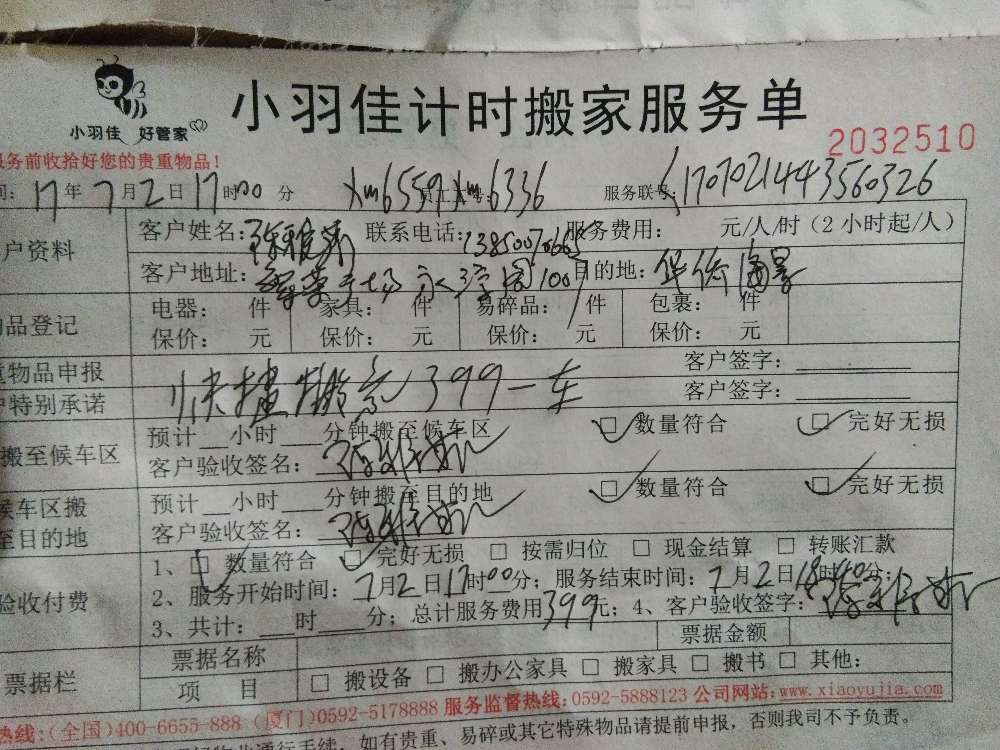 小羽佳计时搬家服务单
小羽佳 好管家
2032510
服务前收拾好您的贵重物品！
间: 17年7月2日17时00分 xm6559 员工 号: xm6336 服务联号: 1707021443560326
户资料 客户姓名: 联系电话: 服务费用: 元/人/时（2小时起/人）
客户地址: 目的地: 华侨海景
品登记 电器: 件 家具: 件 易碎品: 件 包裹: 件
保价: 元 保价: 元 保价: 元 保价: 元
重物品申报 客户签字:
户特别承诺 快捷搬家399一车 客户签字:
搬至候车区 预计 小时 分钟搬至候车区 ☑ 数量符合 ☑ 完好无损
客户验收签名:
候车区搬 预计 小时 分钟搬至目的地 ☑ 数量符合 ☑ 完好无损
至目的地 客户验收签名:
验收付费 1、☑ 数量符合 ☑ 完好无损 □ 按需归位 □ 现金结算 □ 转账汇款
2、服务开始时间: 7月2日17时00分; 服务结束时间: 7月2日18时40分;
3、共计: 时 分; 总计服务费用399元; 4、客户验收签字:
票据栏 票据名称 票据金额
项 目 □ 搬设备 □ 搬办公家具 □ 搬家具 □ 搬书 □ 其他:
热线:(全国)400-6655-888 (厦门)0592-5178888 服务监督热线:0592-5888123 公司网站:www.xiaoyujia.com
如有贵重、易碎或其它特殊物品请提前申报，否则我司不予负责。